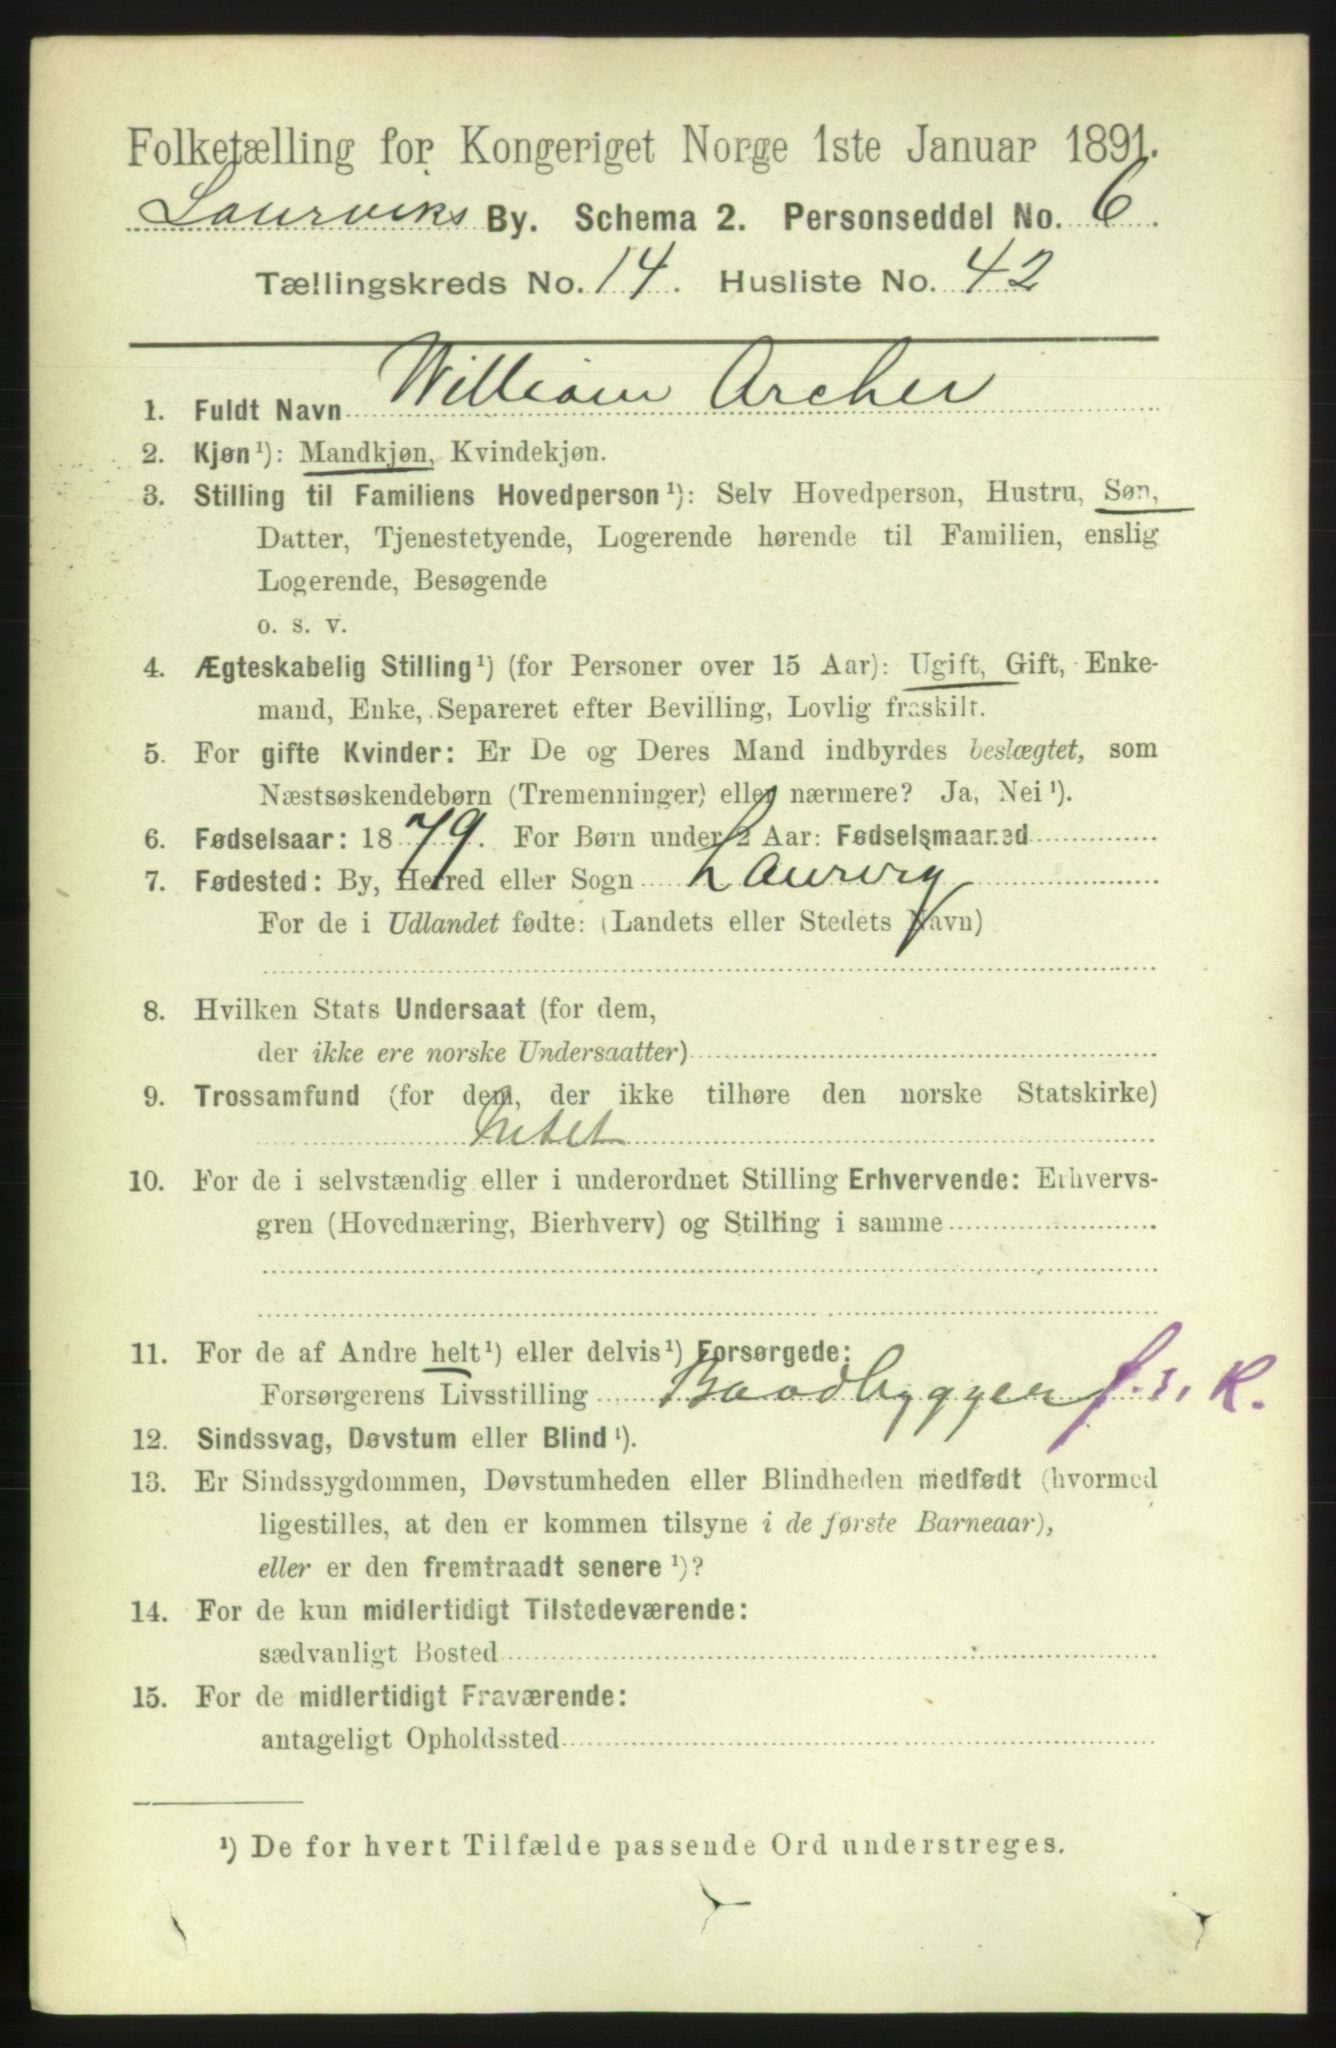 Folketælling for Kongeriget Norge 1ste Januar 1891.
Laurviks By. Schema 2. Personseddel No. 6.
Tællingskreds No. 14. Husliste No. 42
1. Fuldt Navn William Archer
2. Kjøn¹): Mandkjøn, Kvindekjøn.
3. Stilling til Familiens Hovedperson¹): Selv Hovedperson, Hustru, Søn,
Datter, Tjenestetyende, Logerende hørende til Familien, enslig
Logerende, Besøgende
o. s. v.
4. Ægteskabelig Stilling¹) (for Personer over 15 Aar): Ugift, Gift, Enke-
mand, Enke, Separeret efter Bevilling, Lovlig fraskilt.
5. For gifte Kvinder: Er De og Deres Mand indbyrdes beslægtet, som
Næstsøskendebørn (Tremenninger) eller nærmere? Ja, Nei¹).
6. Fødselsaar: 1879. For Børn under 2 Aar: Fødselsmaaned
7. Fødested: By, Herred eller Sogn Laurvig
For de i Udlandet fødte: (Landets eller Stedets Navn)
8. Hvilken Stats Undersaat (for dem,
der ikke ere norske Undersaatter)
9. Trossamfund (for dem, der ikke tilhøre den norske Statskirke)
10. For de i selvstændig eller i underordnet Stilling Erhvervende: Erhvervs-
gren (Hovednæring, Bierhverv) og Stilling i samme
11. For de af Andre helt¹) eller delvis¹) Forsørgede:
Forsørgerens Livsstilling Baadbygger f. s. K.
12. Sindssvag, Døvstum eller Blind¹).
13. Er Sindssygdommen, Døvstumheden eller Blindheden medfødt (hvormed
ligestilles, at den er kommen tilsyne i de første Barneaar),
eller er den fremtraadt senere¹)?
14. For de kun midlertidigt Tilstedeværende:
sædvanligt Bosted
15. For de midlertidigt Fraværende:
antageligt Opholdssted
¹) De for hvert Tilfælde passende Ord understreges.